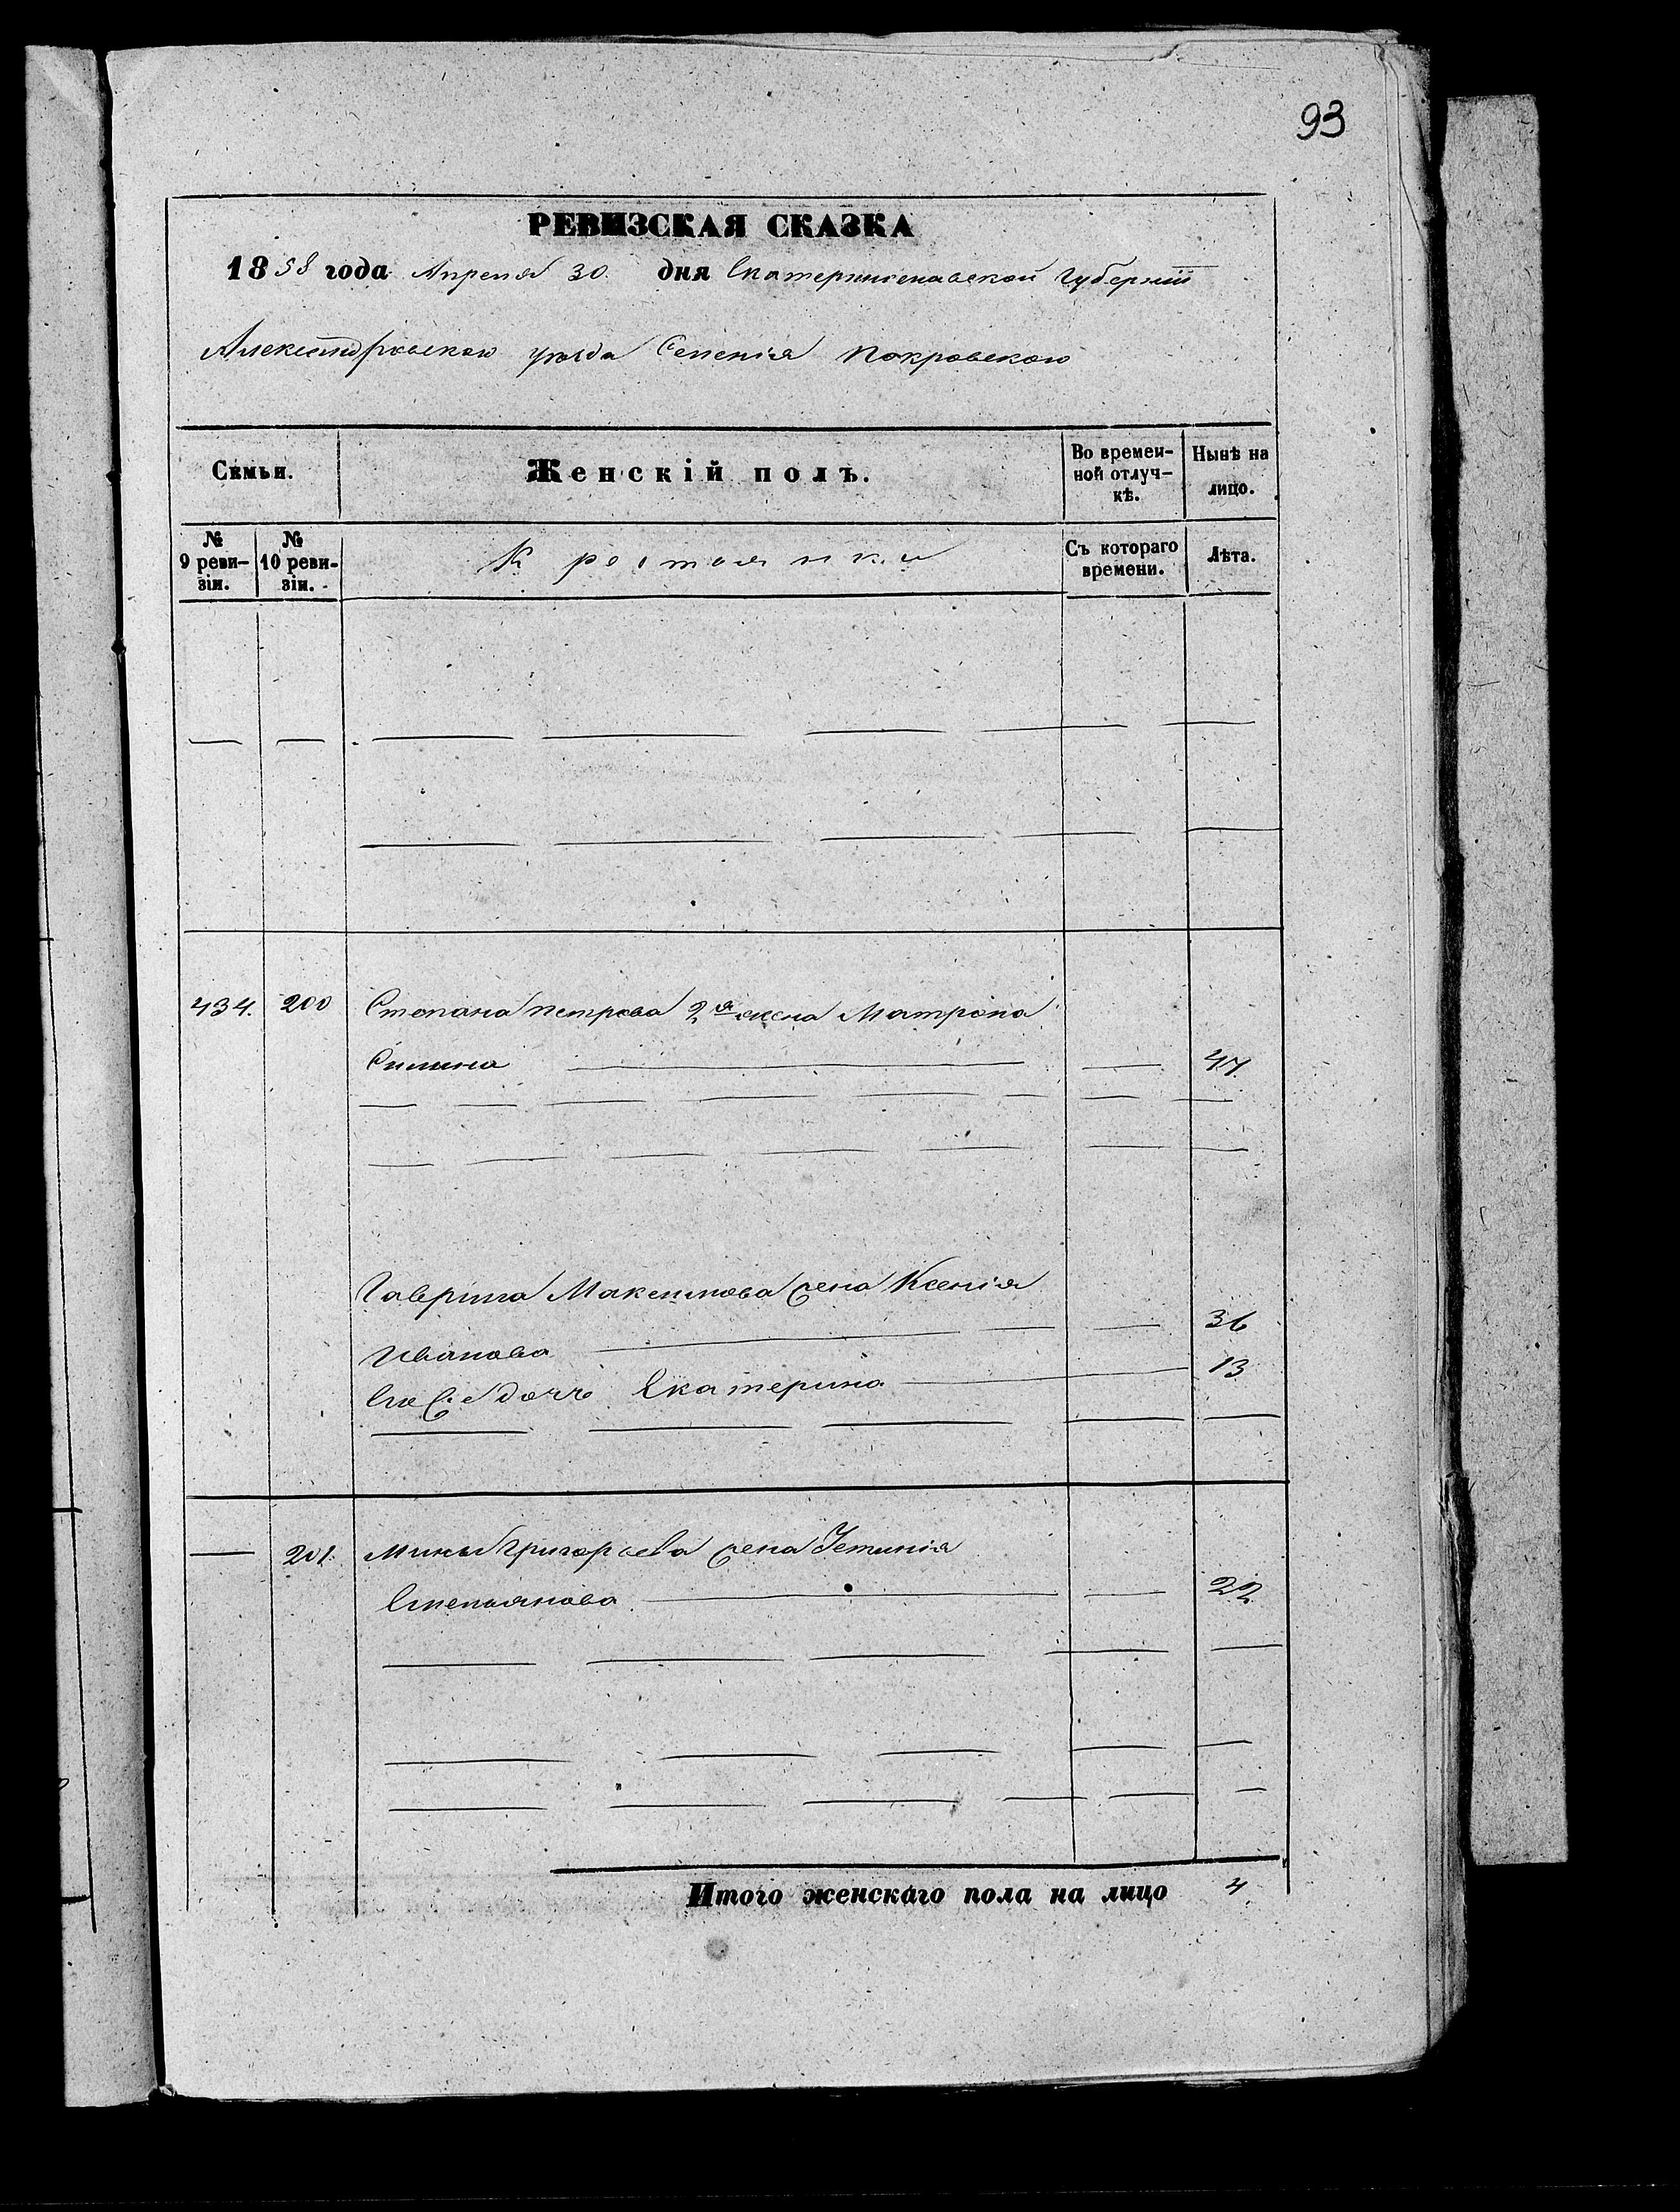 93
РЕВИЗСКАЯ СКАЗКА
1858 года Апреля 30. дня Екатеринославской Губернiи
Александровскаго уѣзда Селенiя Покровскаго
Семьи.
Женскiй полъ.
Во времен-
ной отлуч-
кѣ.
Нынѣ на
лицо.
№
9 реви-
зiи.
№
10 реви-
зiи.
Крестьянки
Съ котораго
времени.
Лѣта.
434. 200 Степана Петрова 2я жена Матрона
47
Гаврила Максимова жена Ксенiя
Иванова 36
Его дочь Екатерина 13
201. Мины Григорьева жена Устинiя
Емельянова 22
Итого женскаго пола на лицо 4